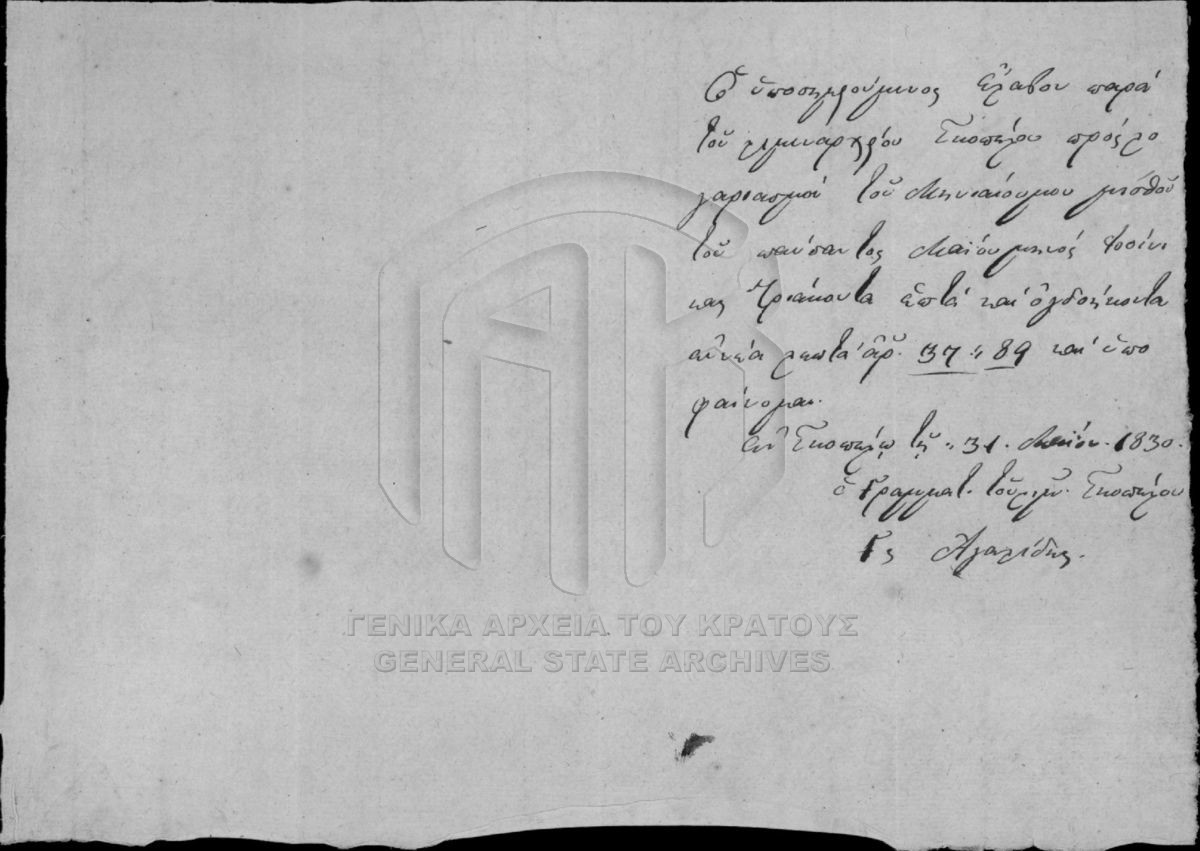 Ὁ ὑποσημειούμενος ἔλαβον παρὰ
τοῦ λιμεναρχείου Σκοπέλου πρὸς λο
γαριασμόν τοῦ Μηνιαίου μου μισθοῦ
τοῦ παύσαντος Μαΐου μηνός φοίνι
κας τριάκοντα ἑπτά καὶ ὀγδοήκοντα
ἀννέα λεπτά ἀρ. 37 :, 89 καὶ ὑπο
φαίνομαι.
Ἐν Σκοπέλῳ τῇ „ 31. Μαΐου. 1830.
ὁ Γραμματ. τοῦ λιμ. Σκοπέλου
Γς Ἀγαλίδης.
ΓΕΝΙΚΑ ΑΡΧΕΙΑ ΤΟΥ ΚΡΑΤΟΥΣ
GENERAL STATE ARCHIVES